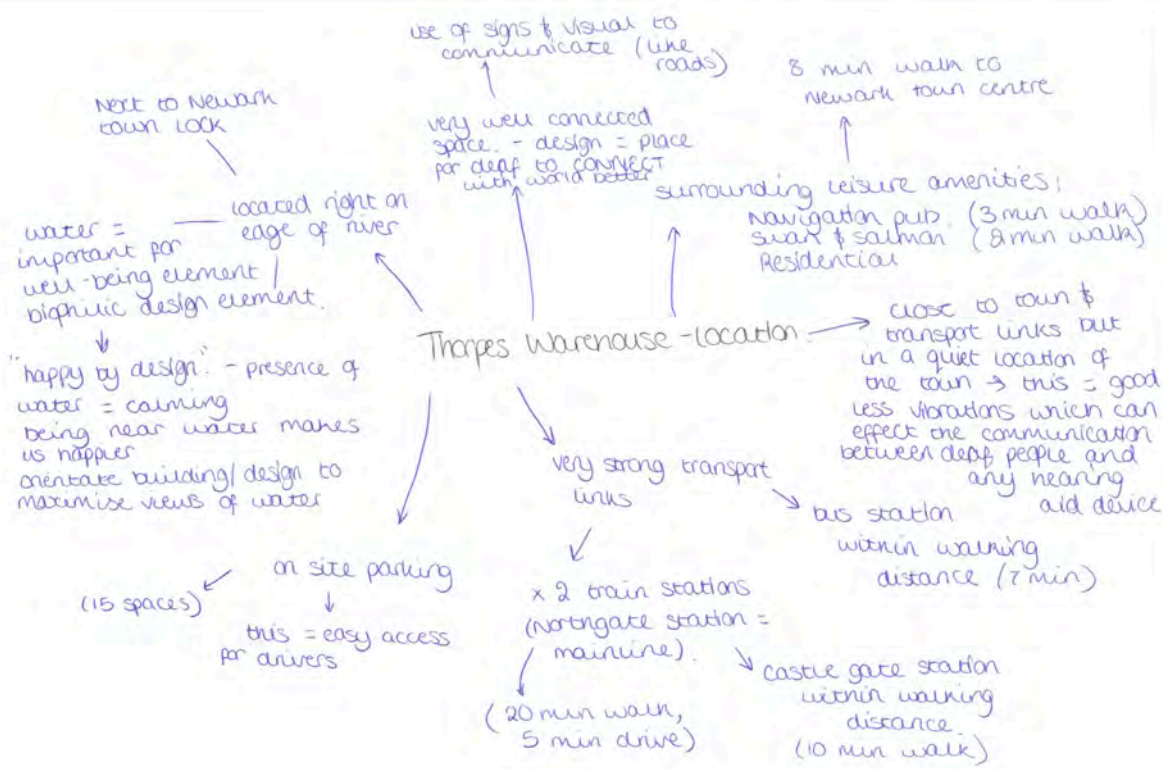 use of signs & visual to
communicate (like
roads)
8 min walk to
Newark town centre
Next to Newark
town LOCK
very well connected
space. - design = place
for deaf to CONNECT
with world better
surrounding leisure amenities;
Navigation pub. (3 min walk)
Swan & salmon (2 min walk)
Residential
located right on
edge of river
water =
important for
well-being element
biophilic design element.
Thorpes Warehouse - location
close to town &
transport links but
in a quiet location of
the town → this = good
less vibrations which can
effect the communication
between deaf people and
any hearing
aid device
"happy by design" - presence of
water = calming
being near water makes
us happier
orientate building/design to
maximise views of water
very strong transport
links
bus station
within walking
distance (7 min)
on site parking
(15 spaces)
this = easy access
for drivers
x 2 train stations
(Northgate station =
mainline).
(20 min walk,
5 min drive)
castle gate station
within walking
distance.
(10 min walk)